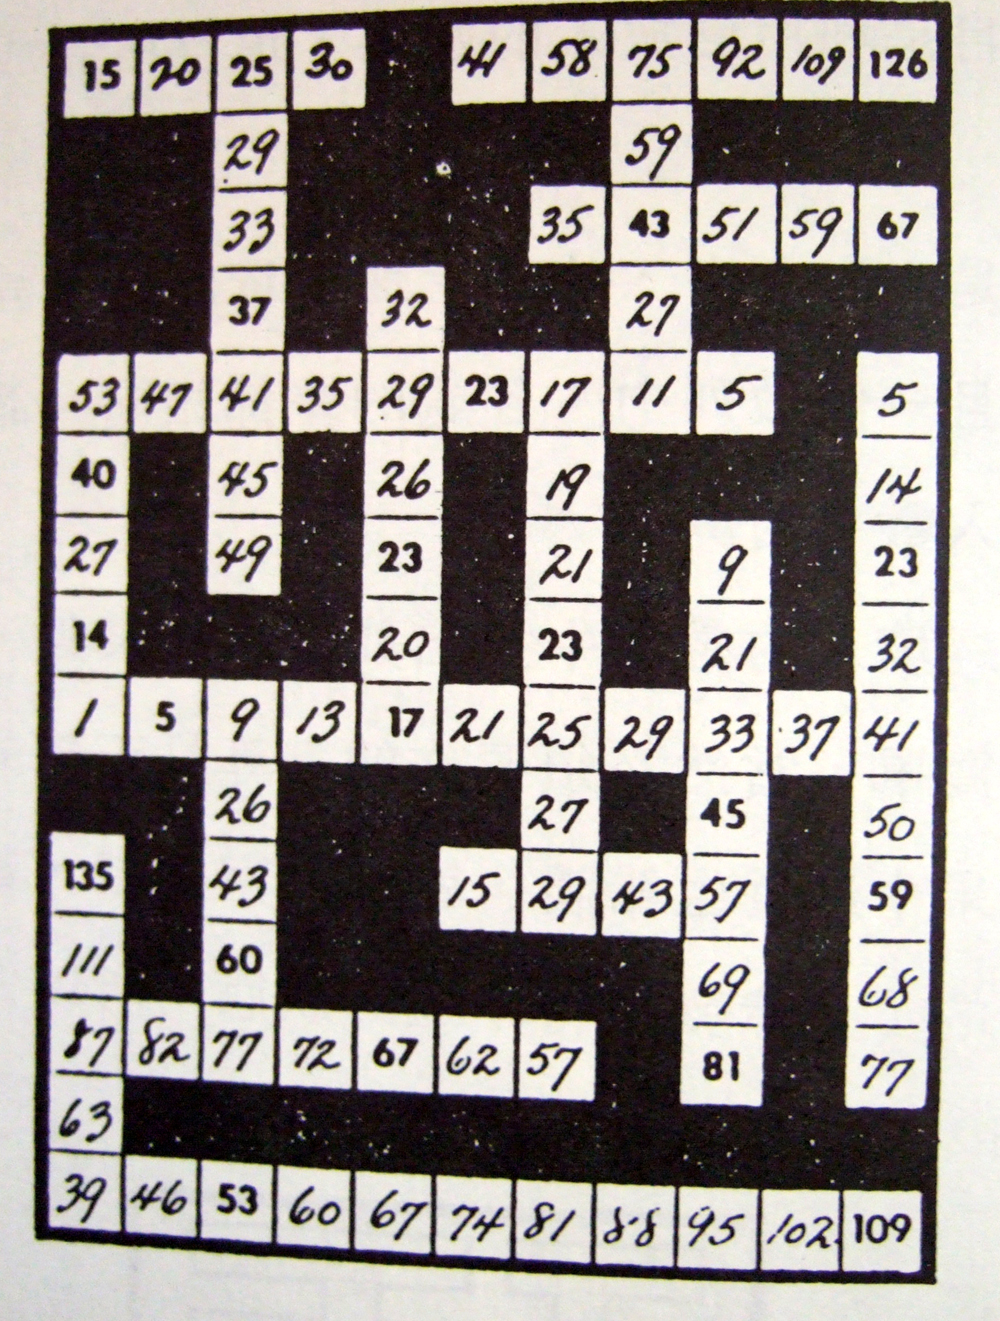 15 20 25 30 41 58 75 92 109 126
29 59
33 35 43 51 59 67
37 32 27
53 47 41 35 29 23 17 11 5 5
40 45 26 19 14
27 49 23 21 9 23
14 20 23 21 32
1 5 9 13 17 21 25 29 33 37 41
26 27 45 50
135 43 15 29 43 57 59
111 60 69 68
87 82 77 72 67 62 57 81 77
63
39 46 53 60 67 74 81 88 95 102 109